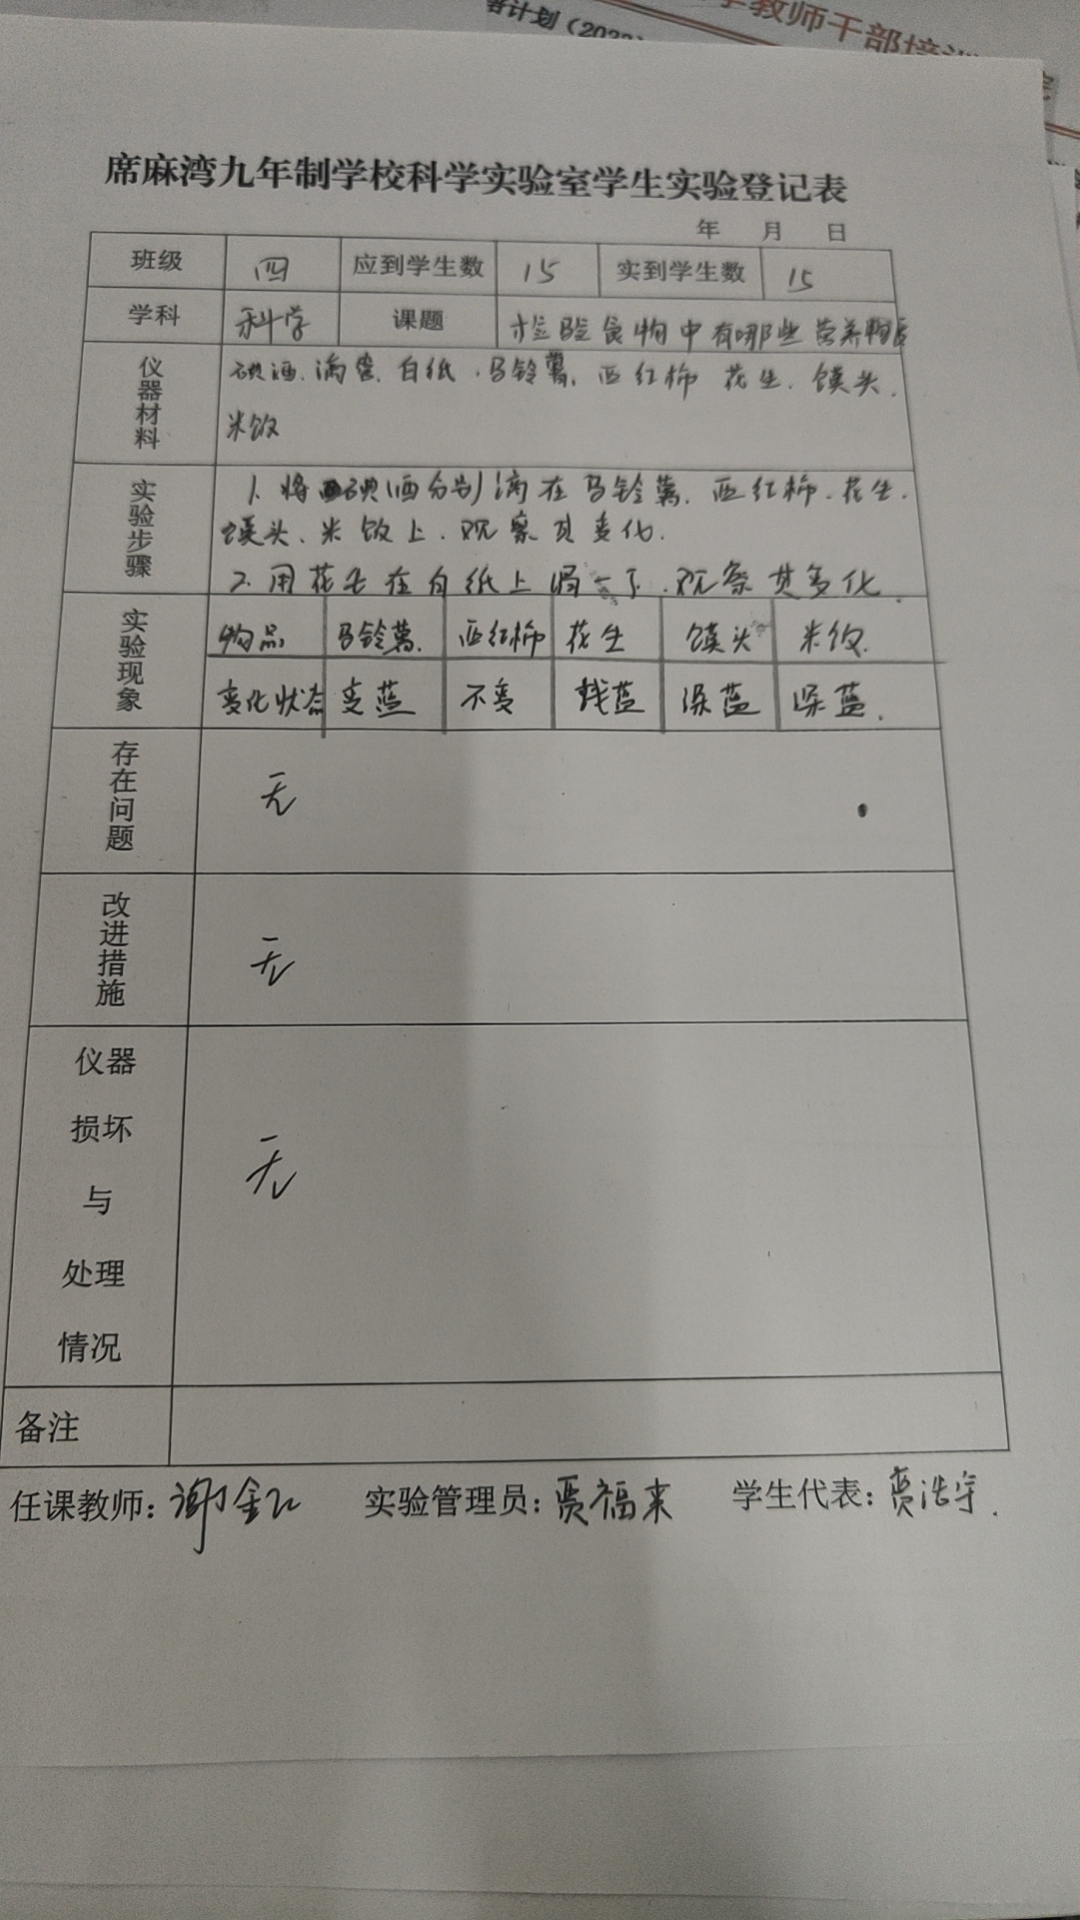 计划(2022)
教师干部培训
席麻湾九年制学校科学实验室学生实验登记表
年 月 日
班级 四 应到学生数 15 实到学生数 15
学科 科学 课题 检验食物中有哪些营养物质
仪器材料 碘酒、滴管、白纸、马铃薯、西红柿 花生、馍头、
米饭
实验步骤 1. 将碘酒分别滴在马铃薯、西红柿、花生、
馍头、米饭上,观察其变化.
2. 用花生在白纸上 一下,观察其变化.
实验现象 物品 马铃薯. 西红柿 花生 馍头 米饭.
变化状态 变蓝 不变 浅蓝 深蓝 深蓝.
存在问题 无
改进措施 无
仪器
损坏
与 无
处理
情况
备注
任课教师: 谢 实验管理员: 贾福来 学生代表: 贾浩宇.